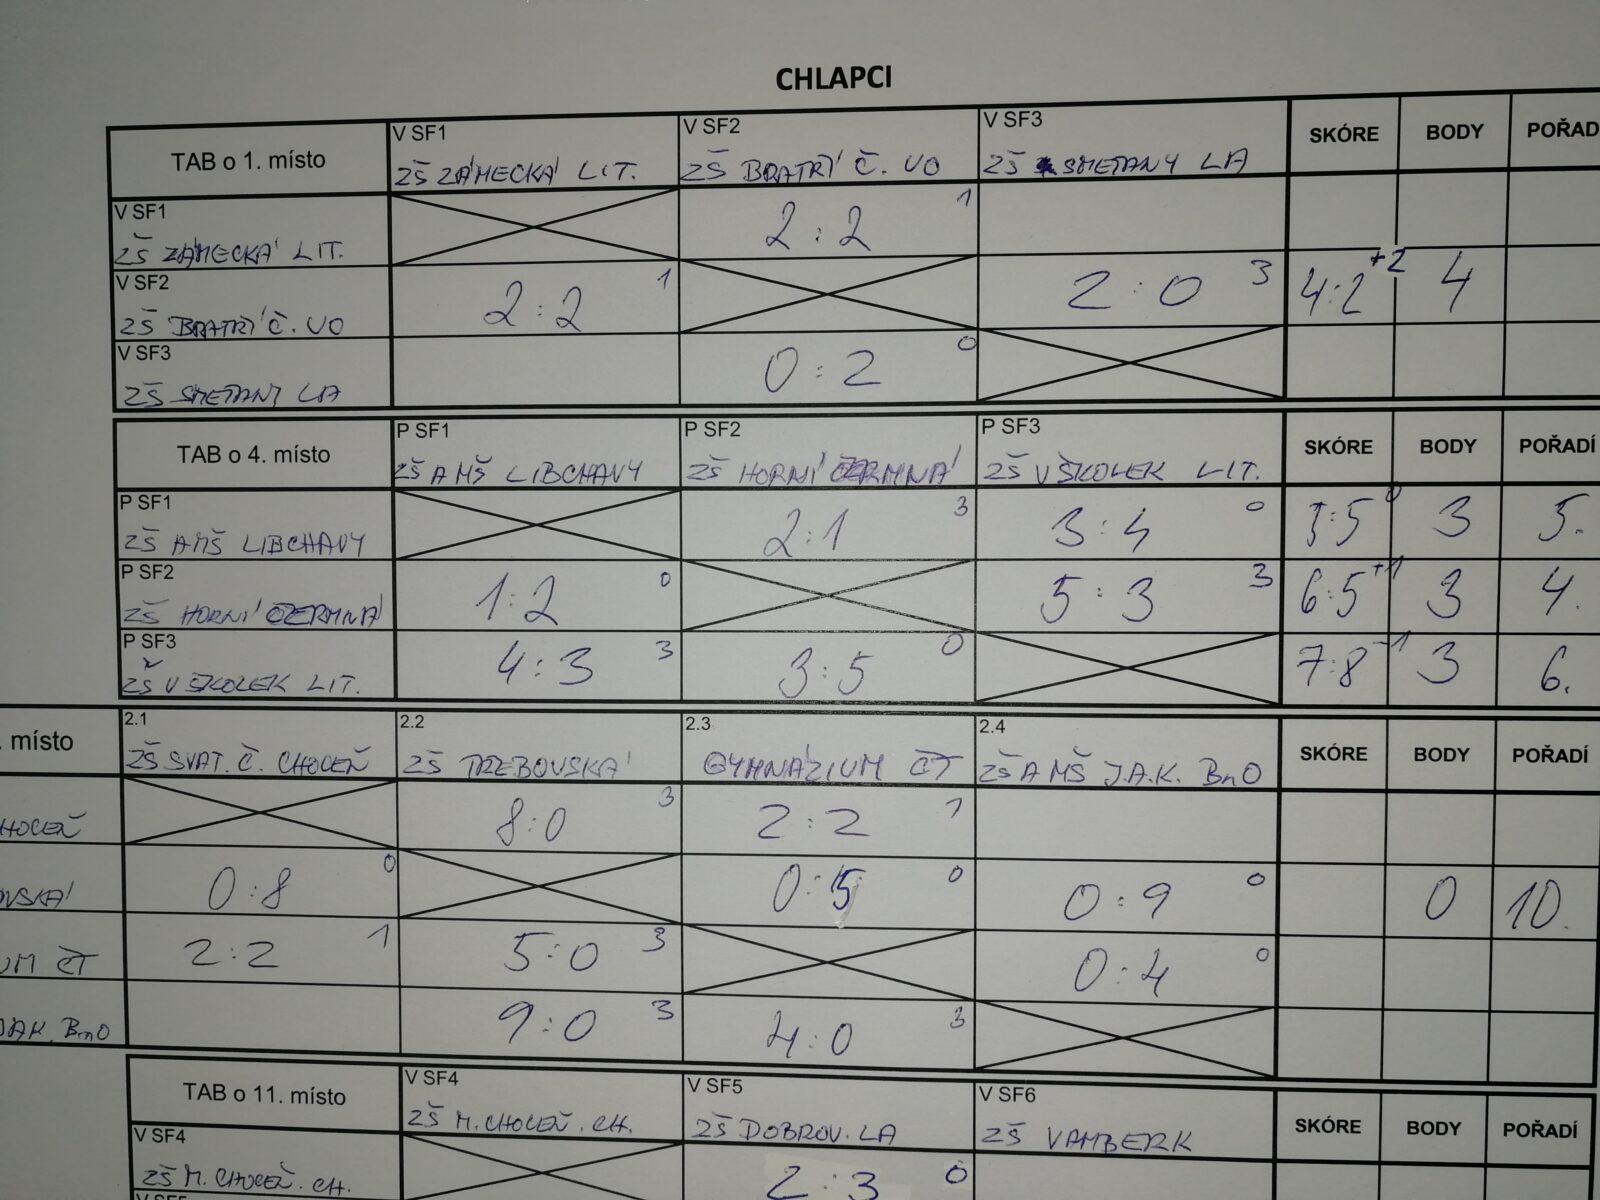 CHLAPCI
TAB o 1. místo V SF1 V SF2 V SF3 SKÓRE BODY POŘAD
ZŠ ZÁMECKÁ LIT. ZŠ BRATŘÍ Č. UO ZŠ SMETANY LA
V SF1 2:2 1
ZŠ ZÁMECKÁ LIT.
V SF2 2:2 1 2:0 3 4:2 +2 4
ZŠ BRATŘÍ Č. UO
V SF3 0:2 0
ZŠ SMETANY LA
TAB o 4. místo P SF1 P SF2 P SF3 SKÓRE BODY POŘADÍ
ZŠ A MŠ LIBCHAVY ZŠ HORNÍ ČERMNÁ ZŠ U ŠKOLEK LIT.
P SF1 2:1 3 3:4 0 5:5 0 3 5.
ZŠ A MŠ LIBCHAVY
P SF2 1:2 0 5:3 3 6:5 +1 3 4.
ZŠ HORNÍ ČERMNÁ
P SF3 4:3 3 3:5 0 7:8 -1 3 6.
ZŠ U ŠKOLEK LIT.
. místo 2.1 2.2 2.3 2.4 SKÓRE BODY POŘADÍ
ZŠ SVAT. Č. CHOCEŇ ZŠ TŘEBOVSKÁ GYMNÁZIUM ČT ZŠ A MŠ J.A.K. BnO
HOCEŇ 8:0 3 2:2 1
OVSKÁ 0:8 0 0:5 0 0:9 0 0 10.
UM ČT 2:2 1 5:0 3 0:4 0
JAK. BnO 9:0 3 4:0 3
TAB o 11. místo V SF4 V SF5 V SF6 SKÓRE BODY POŘADÍ
ZŠ M. CHOCEŇ. CH. ZŠ DOBROV. LA ZŠ VAMBERK
V SF4 2:3 0
ZŠ M. CHOCEŇ. CH.